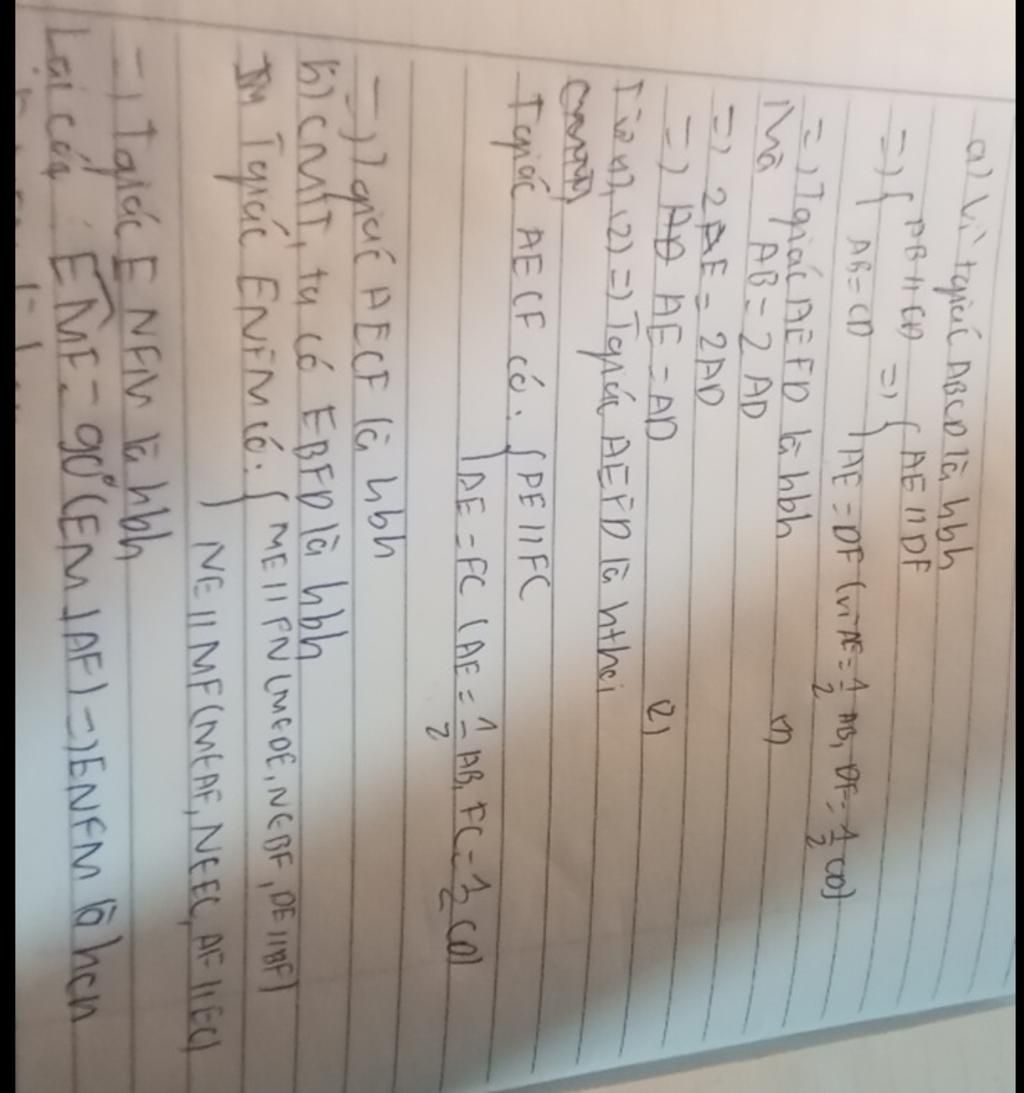 a) Vì tgiác ABCD là hbh
=> { AB // CD => { AE // DF
AB = CD AE = DF (vì AE = 1/2 AB, DF = 1/2 CD)
=> Tgiác AEFD là hbh (1)
Mà AB = 2 AD
=> 2 AE = 2AD
=> AE = AD (2)
Từ (1), (2) => Tgiác AEFD là hthoi
Tgiác AECF có: { AE // FC
AE = FC (AE = 1/2 AB, FC = 1/2 CD)
=> Tgiác AECF là hbh
b) CMT, ta có EBFD là hbh
Tgiác ENFM có: { ME // FN (M∈DE, N∈BF, DE // BF)
NE // MF (M∈AF, N∈EC, AF // EC)
=> Tgiác ENFM là hbh
Lại có: EMF = 90° (EM ⊥ AF) => ENFM là hcn